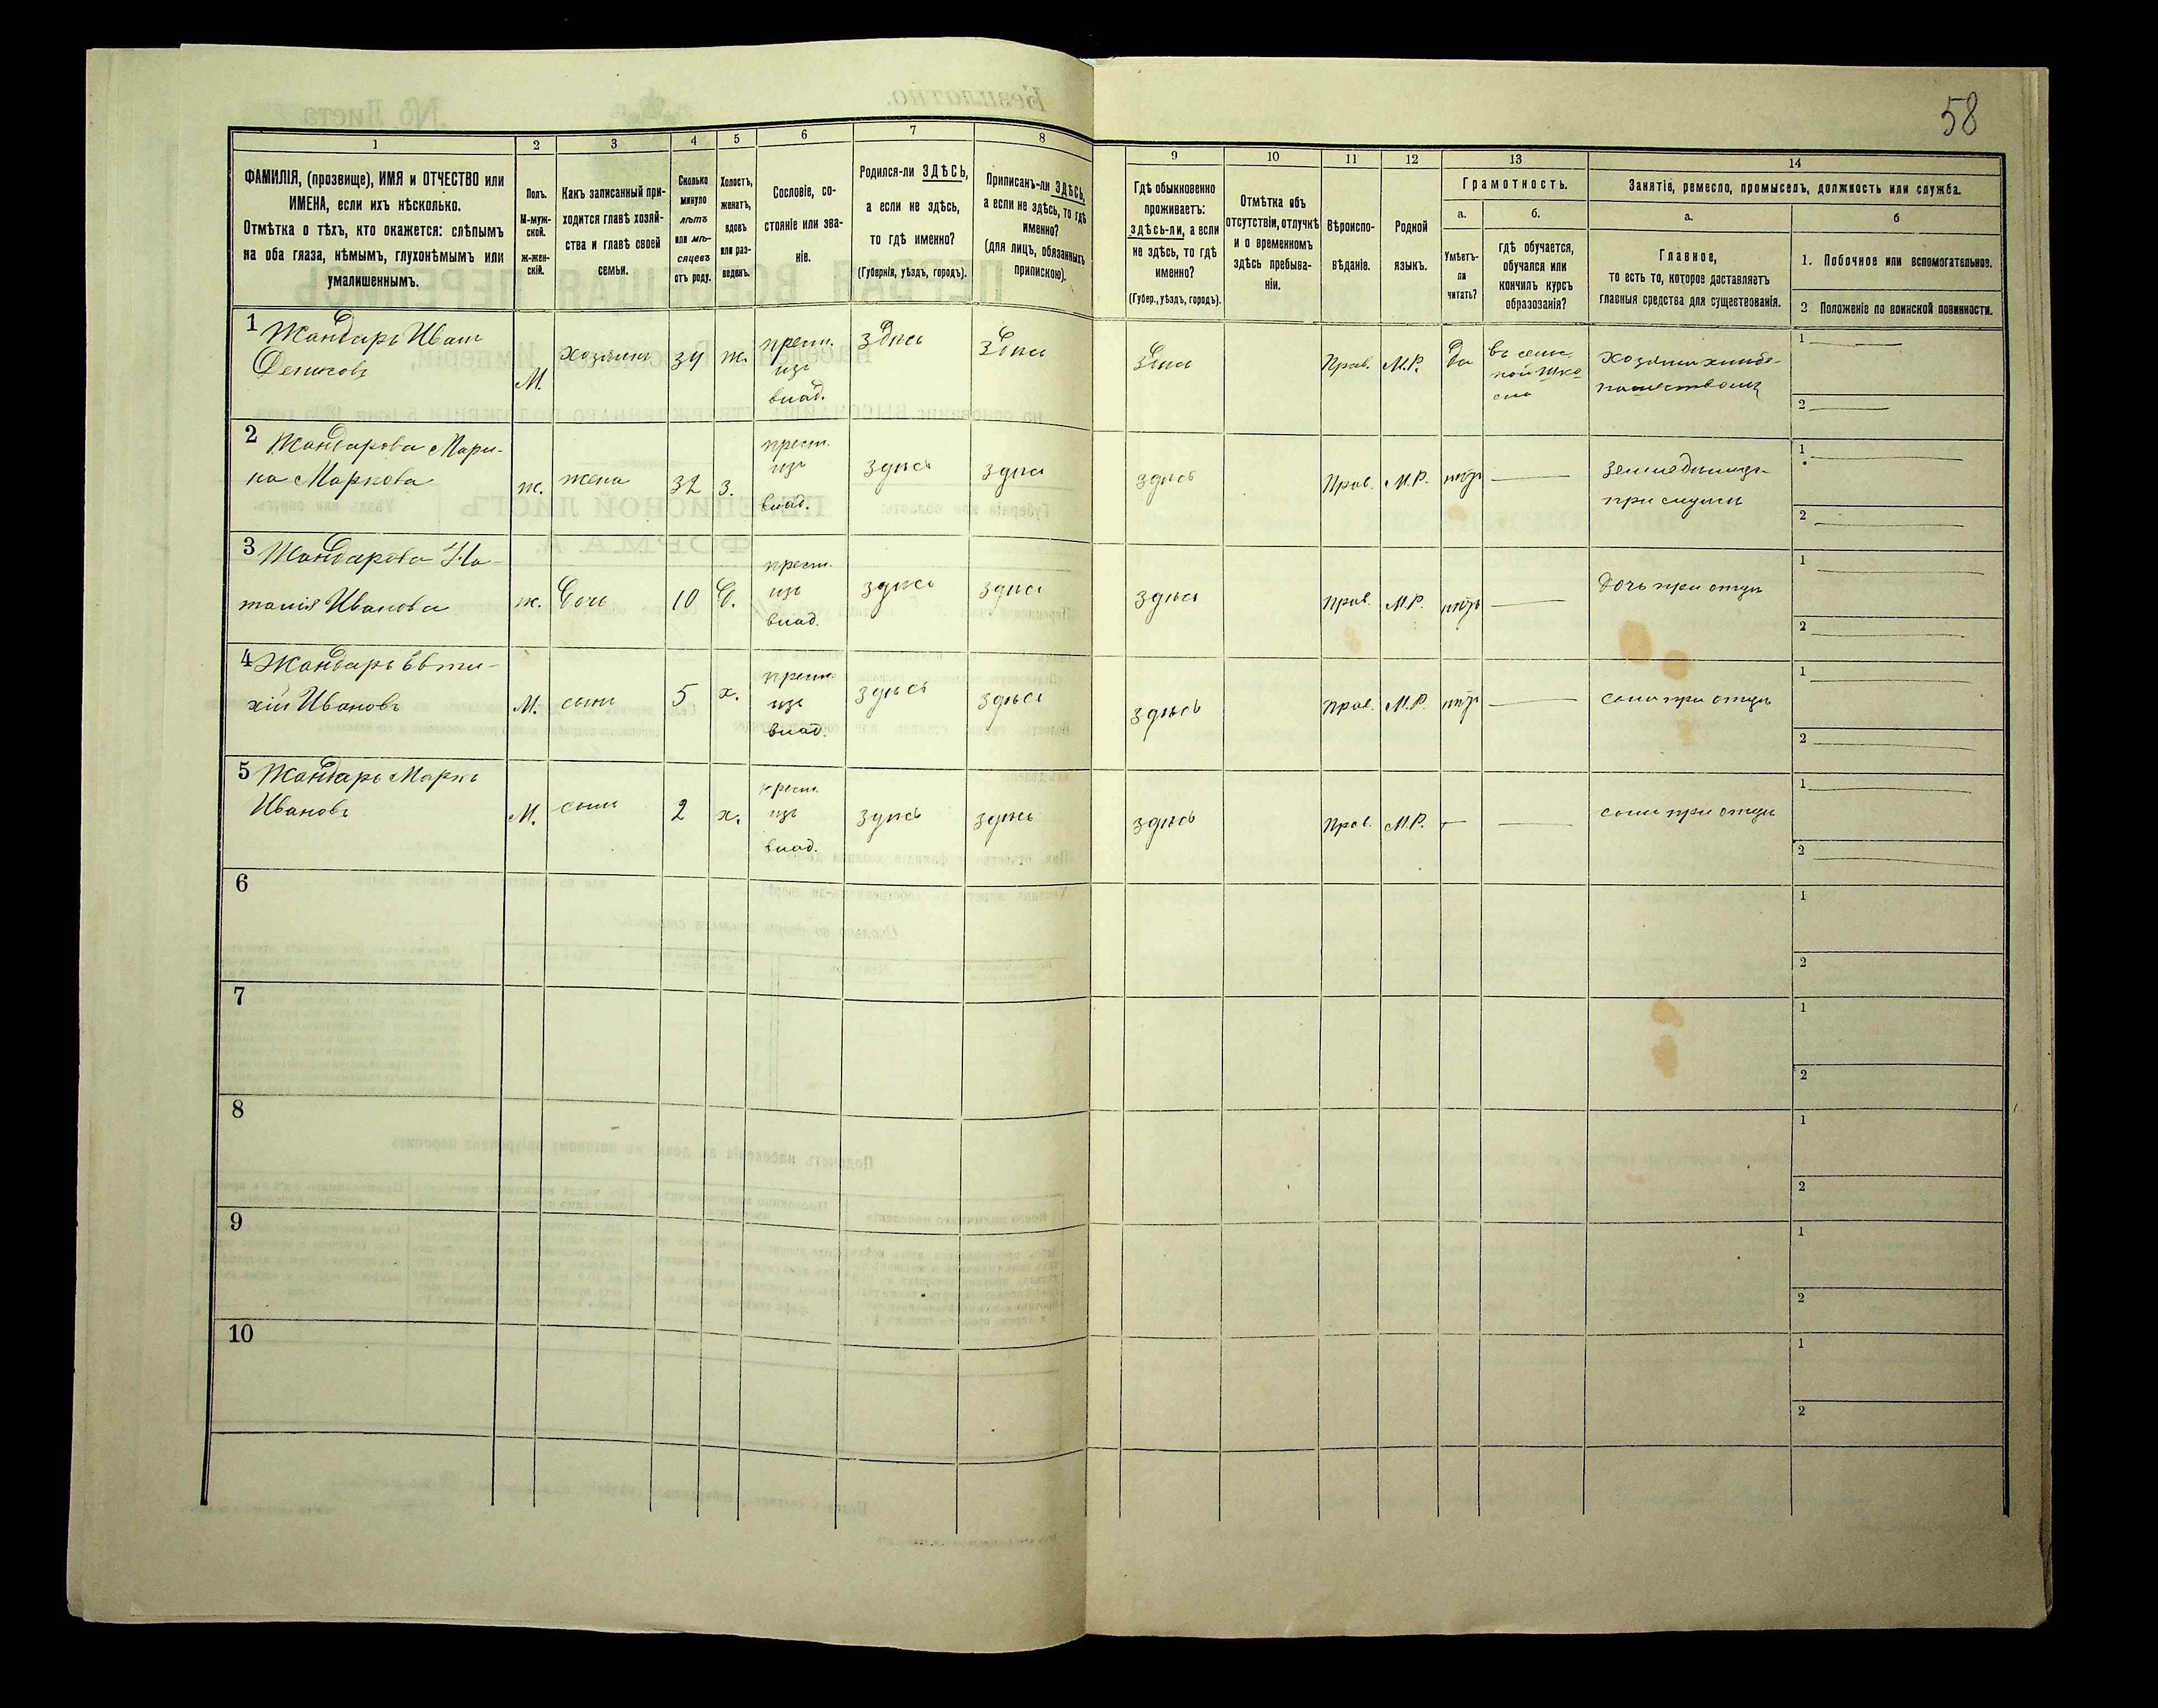 58
1
2
3
4
5
6
7
8
9
10
11
12
13
14
ФАМИЛІЯ, (прозвище), ИМЯ и ОТЧЕСТВО или
ИМЕНА, если ихъ нѣсколько.
Отмѣтка о тѣхъ, кто окажется: слѣпымъ
на оба глаза, нѣмымъ, глухонѣмымъ или
умалишеннымъ.
Полъ.
М-муж-
ской.
ж-жен-
скій.
Какъ записанный при-
ходится главѣ хозяй-
ства и главѣ своей
семьи.
Сколько
минуло
лѣтъ
или мѣ-
сяцевъ
отъ роду.
Холостъ,
женатъ,
вдовъ
или раз-
веденъ.
Сословіе, со-
стояніе или зва-
ніе.
Родился-ли ЗДѢСЬ,
а если не здѣсь,
то гдѣ именно?
(Губернія, уѣздъ, городъ).
Приписанъ-ли ЗДѢСЬ,
а если не здѣсь, то гдѣ
именно?
(для лицъ, обязанныхъ
припискою).
Гдѣ обыкновенно
проживаетъ:
здѣсь-ли, а если
не здѣсь, то гдѣ
именно?
(Губер., уѣздъ, городъ).
Отмѣтка объ
отсутствіи, отлучкѣ
и о временномъ
здѣсь пребыва-
ніи.
Вѣроиспо-
вѣданіе.
Родной
языкъ.
Грамотность.
а.
Умѣетъ-
ли
читать?
б.
гдѣ обучается,
обучался или
кончилъ курсъ
образованія?
Занятіе, ремесло, промыселъ, должность или служба.
а.
Главное,
то есть то, которое доставляетъ
главныя средства для существованія.
б
1. Побочное или вспомогательное.
2 Положеніе по воинской повинности.
1 Жандаръ Иван
Денисовъ
М.
хозяинъ
34
ж.
крест.
изъ
влад.
здѣсь
здѣсь
здѣсь
Прав.
М.Р.
да
въ сель
ской шко
лѣ
хозяинъ хлѣбо-
пашествомъ
1
2
2 Жандарова Мари-
на Маркова
ж.
жена
32
з.
крест.
изъ
влад.
здѣсь
здѣсь
здѣсь
Прав.
М.Р.
нѣтъ
земледѣлица
при мужѣ
1
2
3 Жандарова На-
талія Иванова
ж.
дочь
10
д.
крест.
изъ
влад.
здѣсь
здѣсь
здѣсь
Прав.
М.Р.
нѣтъ
дочь при отцѣ
1
2
4 Жандаръ Евти-
хій Ивановъ
М.
сынъ
5
х.
крест.
изъ
влад.
здѣсь
здѣсь
здѣсь
Прав.
М.Р.
нѣтъ
сынъ при отцѣ
1
2
5 Жандаръ Маркъ
Ивановъ
М.
сынъ
2
х.
крест.
изъ
влад.
здѣсь
здѣсь
здѣсь
Прав.
М.Р.
сынъ при отцѣ
1
2
6
1
2
7
1
2
8
1
2
9
1
2
10
1
2